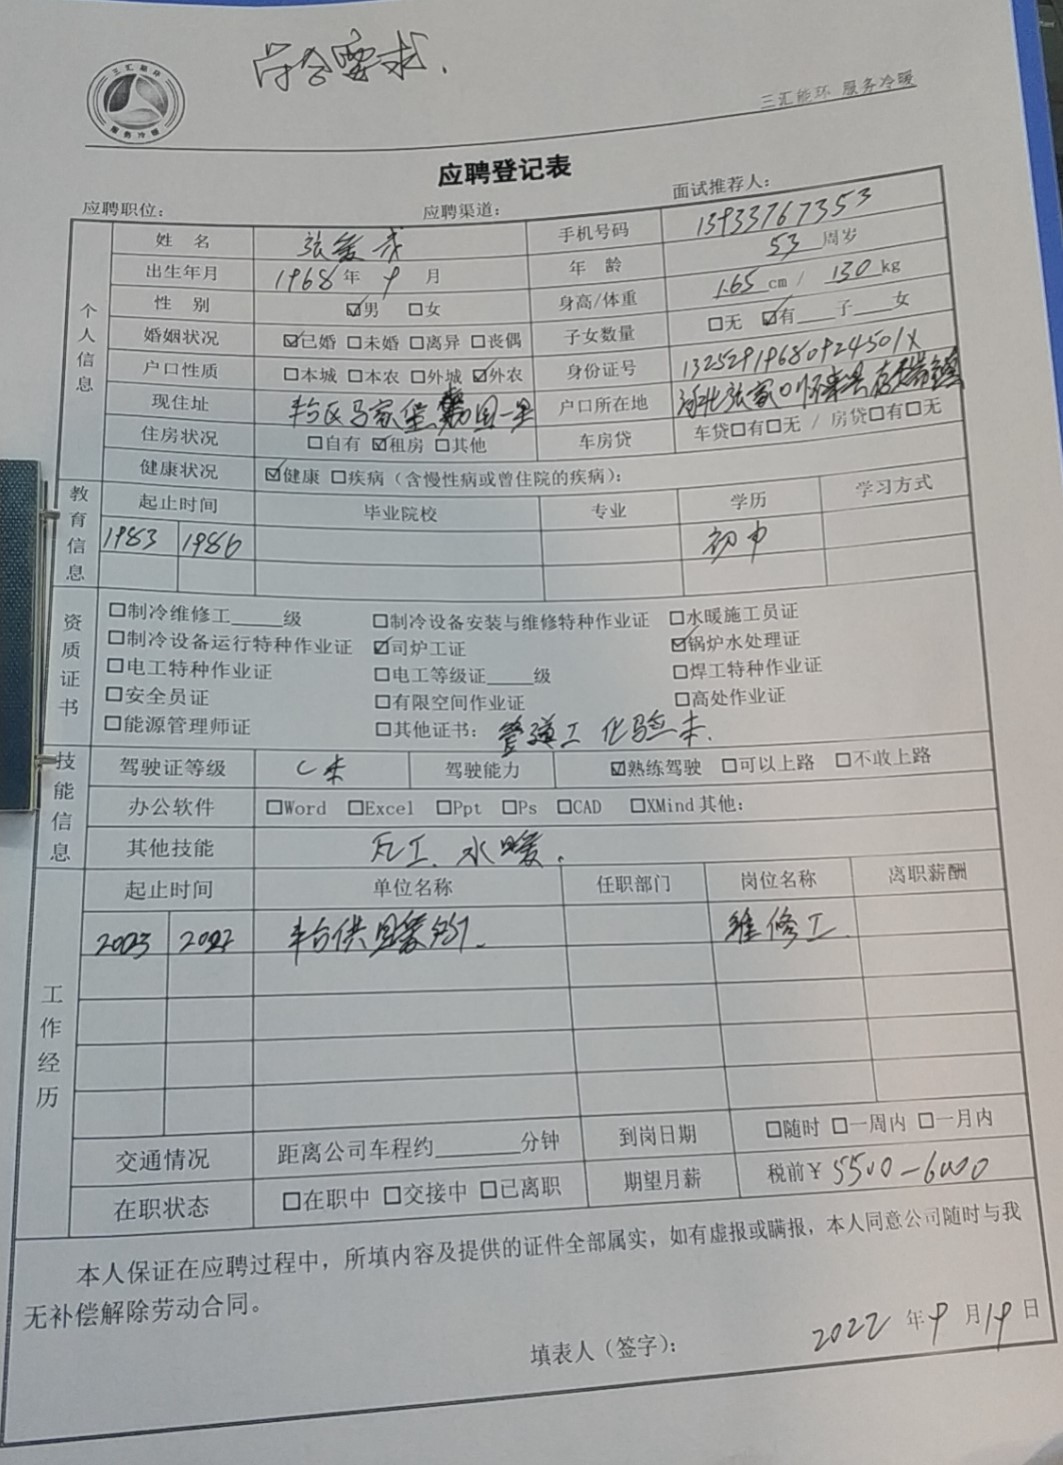 符合要求.
三汇能环
服务冷暖
三汇能环 服务冷暖
应聘登记表
应聘职位: 应聘渠道: 面试推荐人:
个人信息
姓 名 张 手机号码 13933767353
出生年月 1968年9月 年 龄 53周岁
性 别 ☑男 □女 身高/体重 1.65cm / 130kg
婚姻状况 ☑已婚 □未婚 □离异 □丧偶 子女数量 □无 ☑有___子___女
户口性质 □本城 □本农 □外城 ☑外农 身份证号 13252919680924501X
现住址 丰台区马家堡 园一里 户口所在地 河北张家口怀来县存瑞镇
住房状况 □自有 ☑租房 □其他 车房贷 车贷□有□无 / 房贷□有□无
健康状况 ☑健康 □疾病（含慢性病或曾住院的疾病）:
教育信息
起止时间 毕业院校 专业 学历 学习方式
1983 1986 初中
资质证书
□制冷维修工_____级 □制冷设备安装与维修特种作业证 □水暖施工员证
□制冷设备运行特种作业证 ☑司炉工证 ☑锅炉水处理证
□电工特种作业证 □电工等级证_____级 □焊工特种作业证
□安全员证 □有限空间作业证 □高处作业证
□能源管理师证 □其他证书: 管道工 化验本.
技能信息
驾驶证等级 C本 驾驶能力 ☑熟练驾驶 □可以上路 □不敢上路
办公软件 □Word □Excel □Ppt □Ps □CAD □XMind 其他:
其他技能 瓦工. 水暖.
工作经历
起止时间 单位名称 任职部门 岗位名称 离职薪酬
2003 2022 丰台供暖所. 维修工.
交通情况 距离公司车程约________分钟 到岗日期 □随时 □一周内 □一月内
在职状态 □在职中 □交接中 □已离职 期望月薪 税前¥5500-6000
本人保证在应聘过程中，所填内容及提供的证件全部属实，如有虚报或瞒报，本人同意公司随时与我
无补偿解除劳动合同。
填表人（签字）: 2022年9月19日